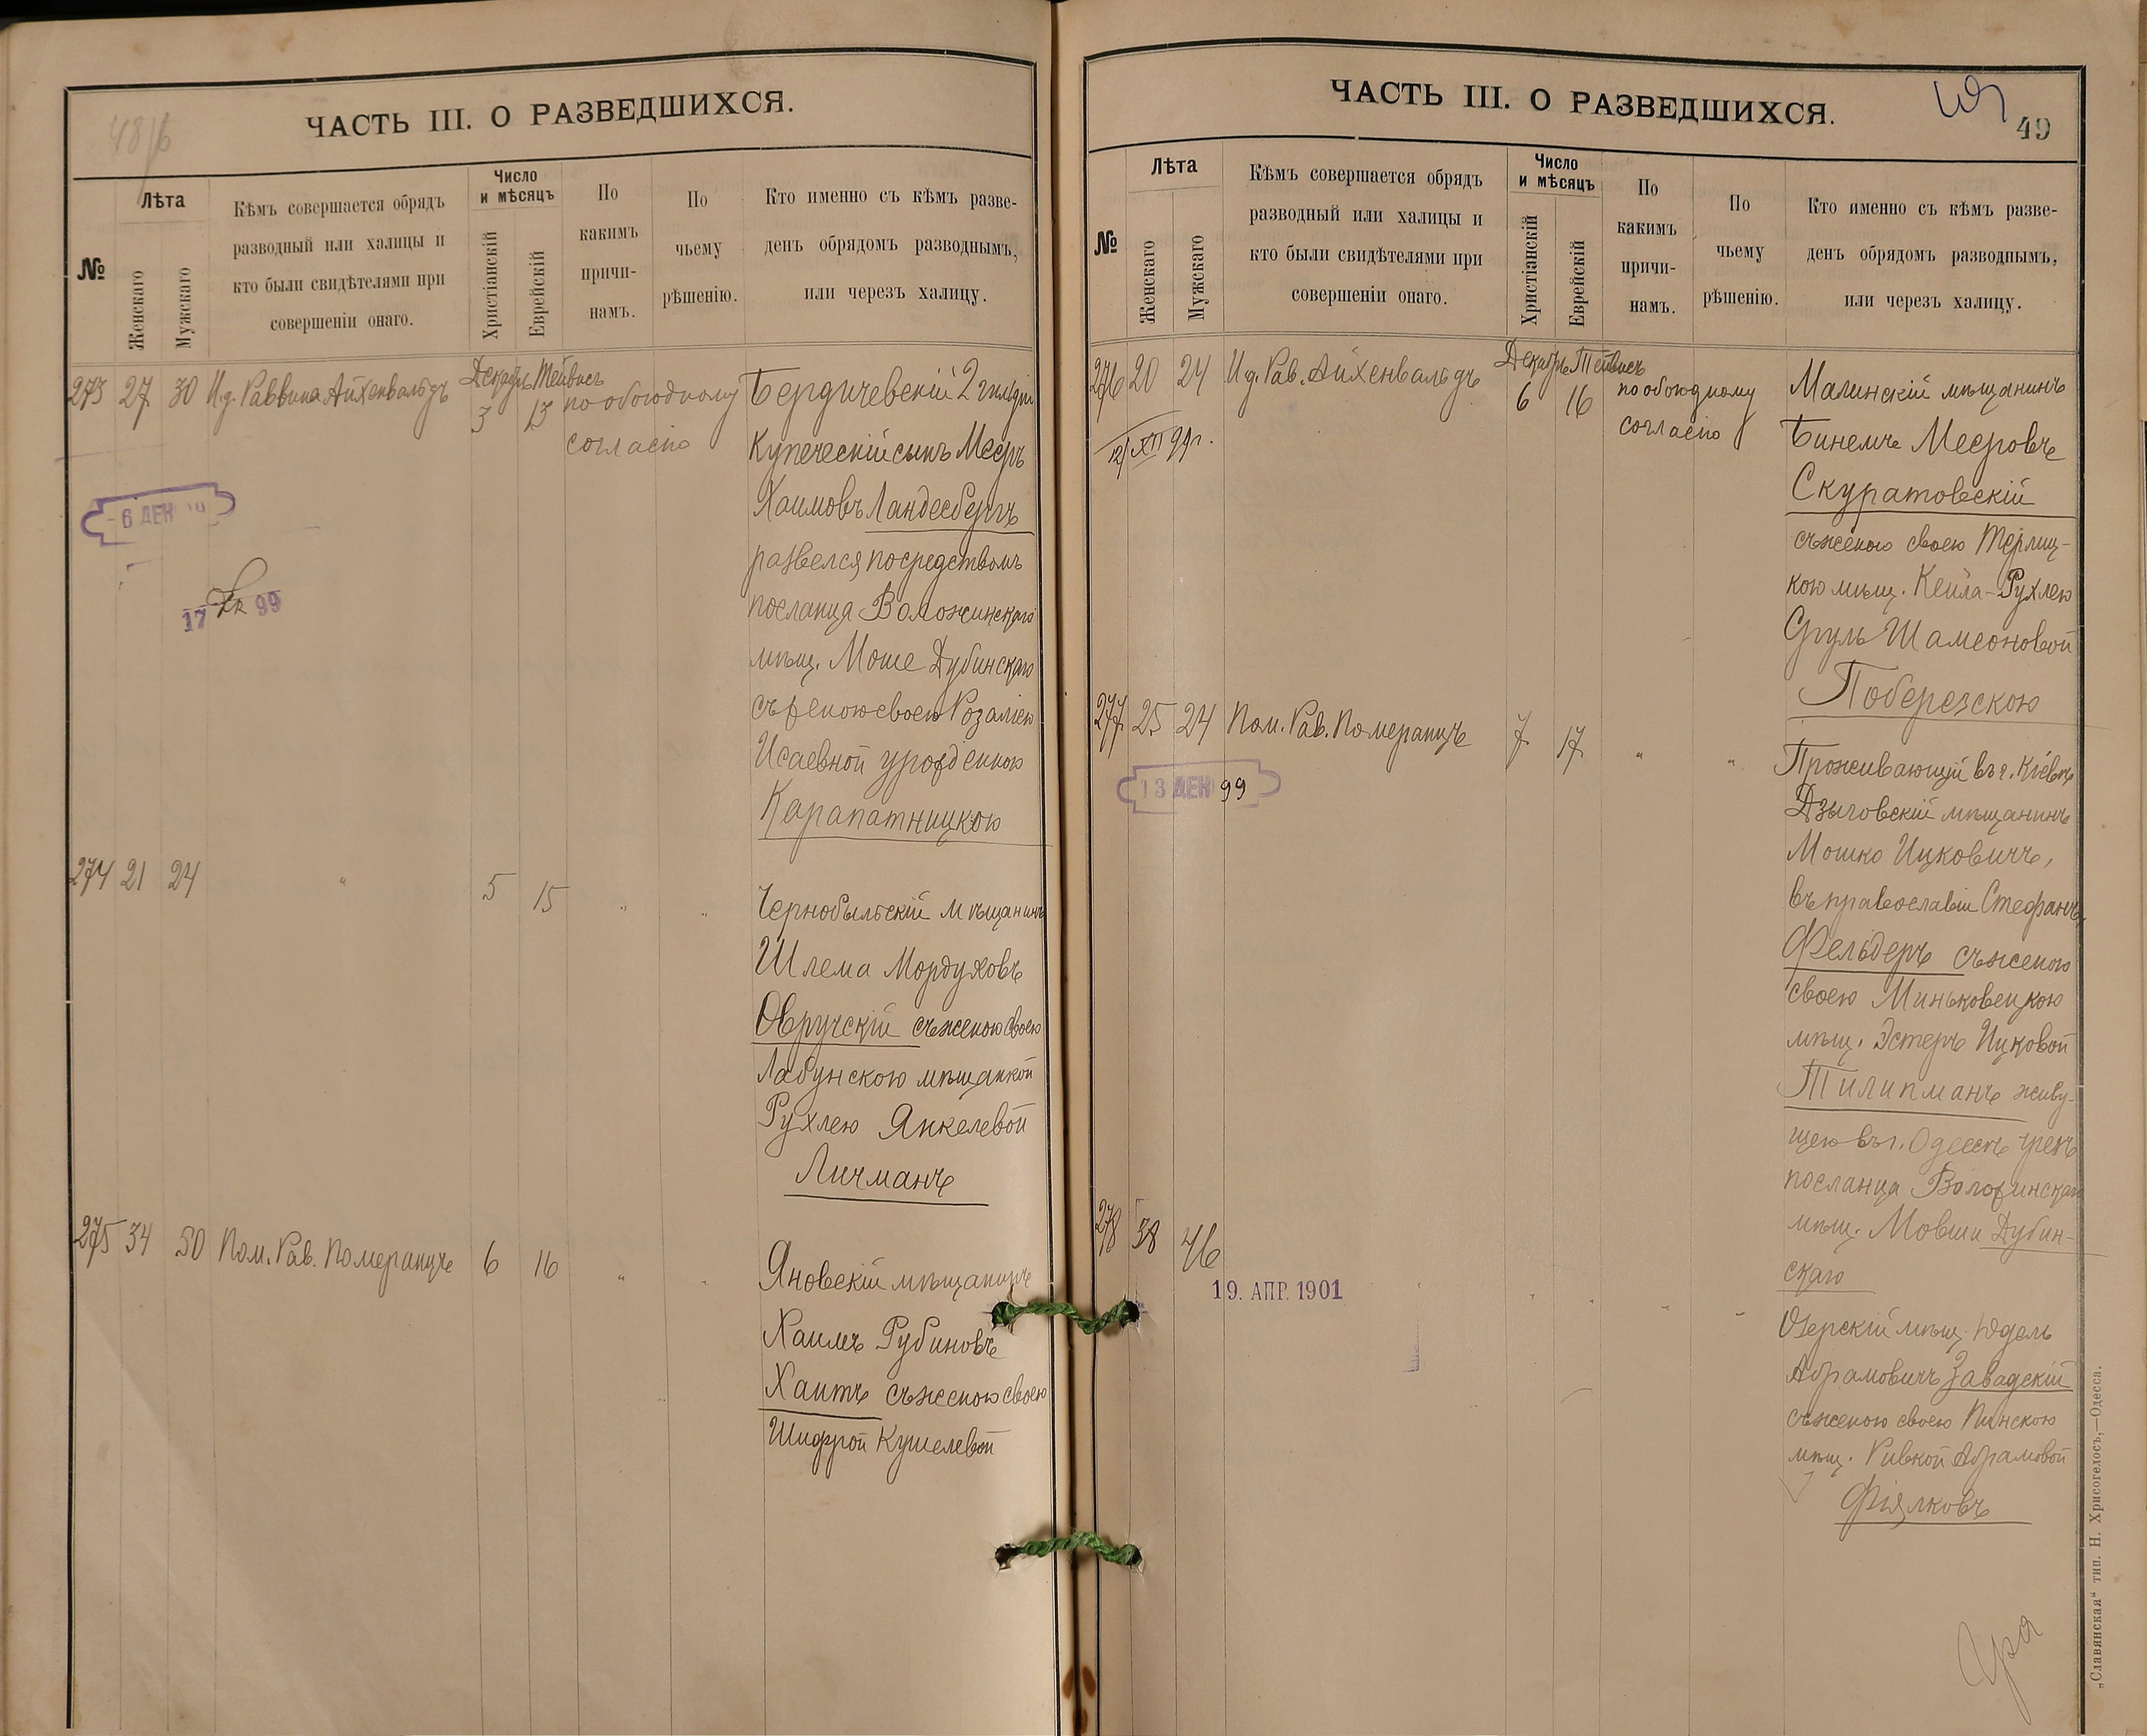 48/б
ЧАСТЬ III. О РАЗВЕДШИХСЯ.
№
Лѣта
Женскаго
Мужскаго
Кѣмъ совершается обрядъ
разводный или халицы и
кто были свидѣтелями при
совершеніи онаго.
Число
и мѣсяцъ
Христіанскій
Еврейскій
По
какимъ
причи-
намъ.
По
чьему
рѣшенію.
Кто именно съ кѣмъ разве-
денъ обрядомъ разводнымъ,
или черезъ халицу.
273 27 30 И.д. Раввина Айхенвальдъ Декабрь 3 Тейвисъ 13 по обоюдному
согласію
Бердичевскій 2 гильдіи
Купеческій сынъ Меєръ
Хаимовъ Ландесбергъ
развелся посредствомъ
посланца Воложинскаго
мѣщ. Моше Дубинскаго
съ женою своею Розаліею
Исаевной урожденною
Карапатницкою
- 6 ДЕК
17 99
274 21 24 " 5 15 " "
Чернобыльскій мѣщанинъ
Шлема Мордуховъ
Овручскій съ женою своею
Лабунскою мѣщанкой
Рухлею Янкелевой
Личманъ
275 34 50 Пом. Рав. Померанцъ 6 16 " "
Яновскій мѣщанинъ
Хаимъ Рубиновъ
Хаитъ съ женою своею
Шифрой Кушелевой
ЧАСТЬ III. О РАЗВЕДШИХСЯ.
49
№
Лѣта
Женскаго
Мужскаго
Кѣмъ совершается обрядъ
разводный или халицы и
кто были свидѣтелями при
совершеніи онаго.
Число
и мѣсяцъ
Христіанскій
Еврейскій
По
какимъ
причи-
намъ.
По
чьему
рѣшенію.
Кто именно съ кѣмъ разве-
денъ обрядомъ разводнымъ,
или черезъ халицу.
276 20 24 И.д. Рав. Айхенвальдъ Декабрь 6 Тейвисъ 16 по обоюдному
согласію
12/XII 99 г.
Малинскій мѣщанинъ
Бинемъ Меєровъ
Скуратовскій
съ женою своею Терлиц-
кою мѣщ. Кейла-Рухлею
Сруль Шамсоновой
Поберезскою
277 25 24 Пом. Рав. Померанцъ 7 17 " "
13 ДЕК 99
Проживающій въ г. Кіевѣ
Дзыговскій мѣщанинъ
Мошко Ицковичъ,
въ православіи Стефанъ
Фельдеръ съ женою
своею Миньковецкою
мѣщ. Эстеръ Ицковой
Тилипманъ живу-
щею въ г. Одессѣ чрезъ
посланца Воложинскаго
мѣщ. Мовши Дубин-
скаго
278 38 46 " " " " "
19. АПР. 1901
Озерскій мѣщ. Юдель
Абрамовичъ Завадскій
съ женою своею Пинскою
мѣщ. Ривкой Абрамовой
Фіялковъ
„Славянская“ тип. Н. Хрисогелосъ,—Одесса.